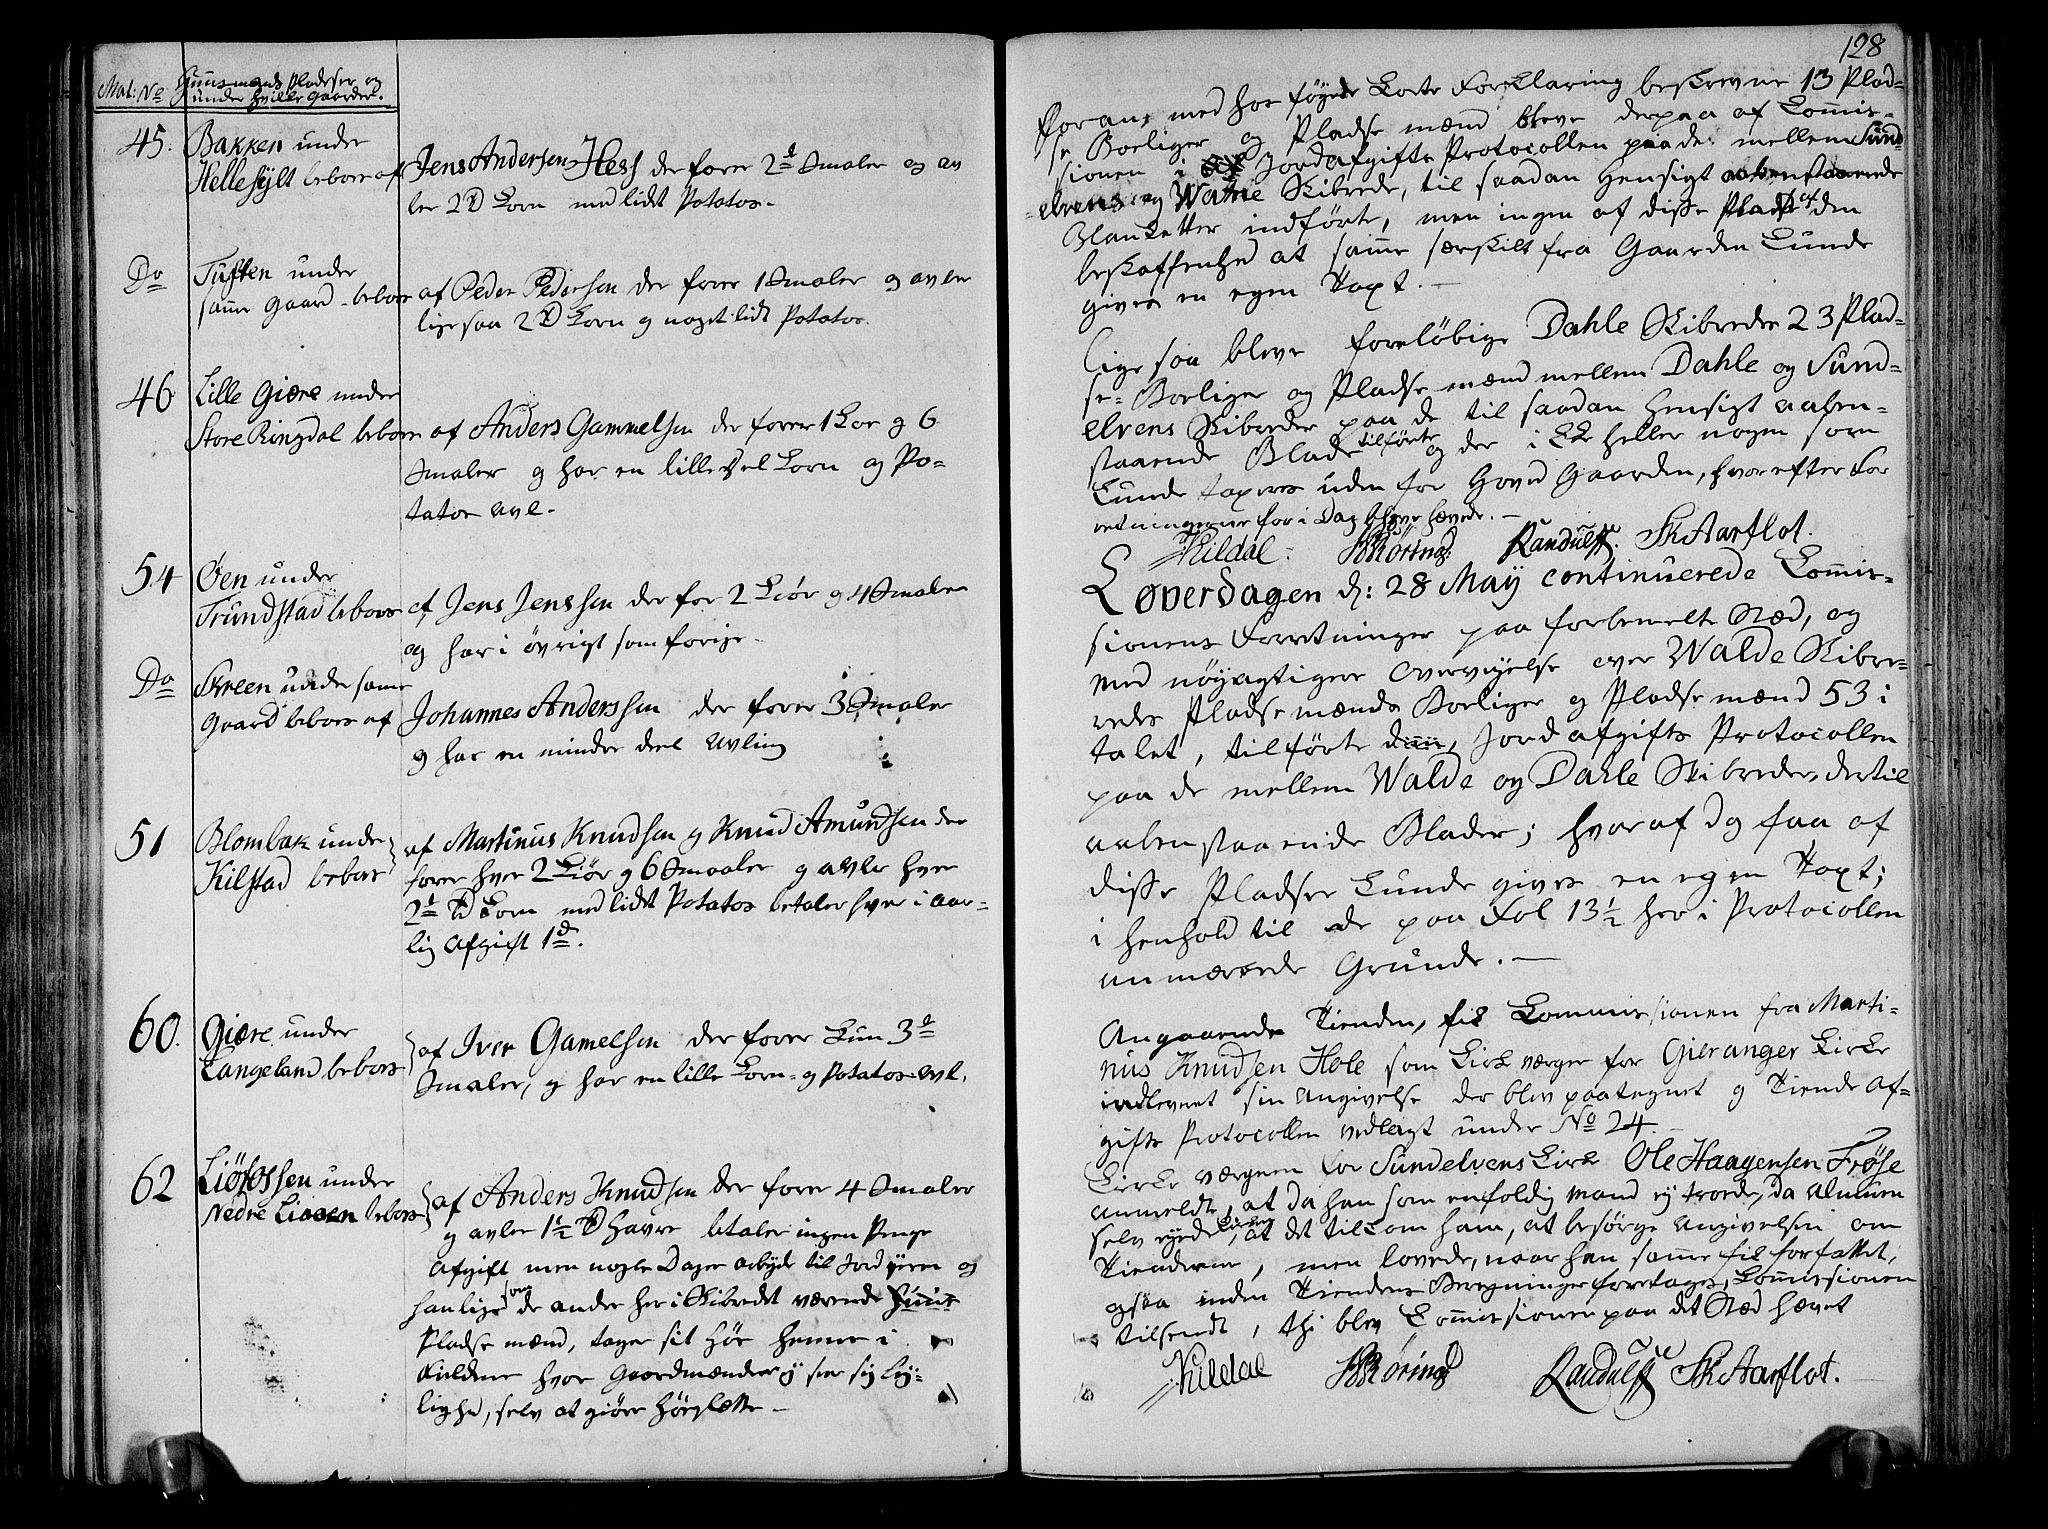 Mat: No Huusmands Pladser og
under hvilke Gaarder.
45. Bakken under
Hellesylt beboes af Jens Andersen Hess der foer 2de Smaler og av
ler 2 Td Korn med lidt Potatos.
Do Tuften under
samme Gaard beboes af Peder Pedersen der foer 1 Smaler og avler
ligesaa 2 Td Korn og noget lidt Potatos.
46 Lille Giære under
Store Ringdal beboes af Anders Gammelsen der foer 1 Koe og 6
Smaler og har en lille Deel Korn og Po-
tatos Avl.
54 Øen under
Trundstad beboes af Jens Jenssen der foer 2 Kiør og 4 Smaler
og har i øvrigt som forige.
Do Skreen under samme
Gaard beboes af Johannes Anderssen der foer 3 Smaler
og har en mindre deel Avling
51 Blombak under
Kilstad beboes af Martinus Knudsen og Knud Amundsen der
foer hver 2 Kiør og 6 Smaaler og avler hver
2de Td Korn med lidet Potatos betaler hver i aar-
lig Afgift 1d.
60. Giære under
Langeland beboes af Iver Gamelsen der foer kun 3de
Smaler, og har en lille Korn- og Potatos-Avl.
62 Liøfossen under
Nedre Lisoen beboes af Anders Knudsen der foer 4 Smaler
og avler 1½ Td Havre betaler ingen Penge
Afgift men nogle Dages arbejde til Jord ejeren og
han ligesom de andre her i Skibredet værende Huus-
Pladse mænd, tager sit Høe hemme i
Fieldene hvor Gaardmændene ej seer sig Lej-
lighed, selv at giøre Høeslætte.
128
Foran, med hos føyede korte Forklaring beskrevne 13 Plad-
se Boeliger og Pladse mænd bleve derpaa af Commis-
sionen i Jordafgifts Protocollen paa de mellem Sund-
elvens og Walde Skibrede, til saadan Hensigt aabenstaaende
Blanketter indførte, men ingen af disse Pladse af den
beskaffenhed at samme særskilt fra Gaarden kunde
gives en egen Taxt.
lige saa bleve foreløbige Dahle Skibredes 23 Plad-
se-Boeliger og Pladse mænd mellem Dahle og Sund-
elvens Skibreder paa de til saadan Hensigt aaben-
staaende Blade tilførte og der i ikke heller nogen som
kunde taxeres uden for Hoved Gaarden, hvorefter For
retningerne for i Dag bleve hævede.
Kildal. Randulff. SkAarflot.
Løverdagen d: 28 May continuerede Commis-
sionens Forretninger paa forbemelte Stæd, og
med nøyagtigere Overvejelse over Walde Skibre-
redes Pladsemænds Boeliger og Pladse mænd 53 i
talet, tilførte Jordafgifts Protocollen
paa de mellem Walde og Dahle Skibreder, dertil
aabenstaaende Blader; hvoraf og faa af
disse Pladser kunde gives en egen Taxt;
i henhold til de paa Fol 13½ her i Protocollen
anmærkede Grunde.
Angaaende Tienden, fik Commissionen fra Marti-
nus Knudsen Hole som Kirkeværger for Gieranger Kirke
indleveret sin Angivelse der blev paategnet og Tiende Af-
gifts Protocollen vedlagt under No 24
Kirke værgeren for Sundelvens Kirke Ole Haagensen Frøse
anmeldte, at da han som eenfoldig Mand ej troede, da Almuen
selv ejede Kirken, at det tilkom ham, at besørge Angivelsen om
Tienderne, men lovede, naar han samme fik forfattet,
ogsaa inden Tiendens Beregninger foretages, Commissionen
tilsendt, thi blev Commissionen paa det Stæd hævet
Kildal Randulff SkAarflot.